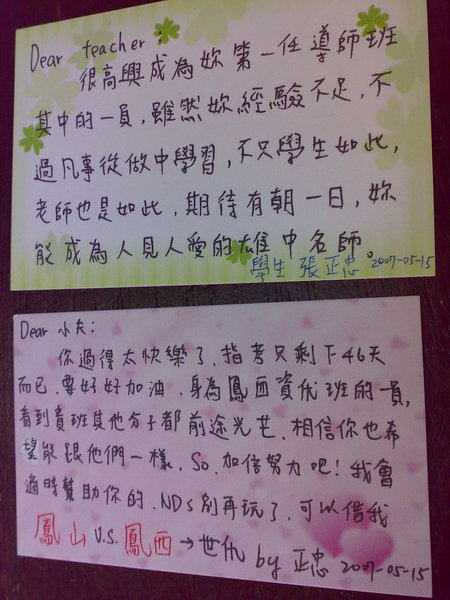 Dear teacher:
很高興成為妳第一任導師班
其中的一員,雖然妳經驗不足,不
過凡事從做中學習,不只學生如此,
老師也是如此,期待有朝一日,妳
能成為人見人愛的雄中名師。
學生 張正忠 2007-05-15
Dear 小夫:
你過得太快樂了,指考只剩下46天
而已,要好好加油,身為鳳西資優班的一員,
看到貴班其他份子都前途光芒,相信你也希
望能跟他們一樣,So,加倍努力吧!我會
適時幫助你的,NDs別再玩了,可以借我
鳳山 V.S. 鳳西→世仇 by 正忠 2007-05-15